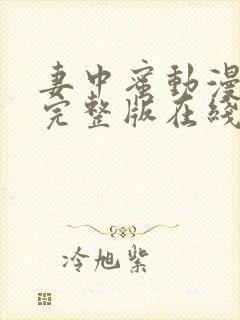 妻中蜜动漫
完整版在线
冷旭紫